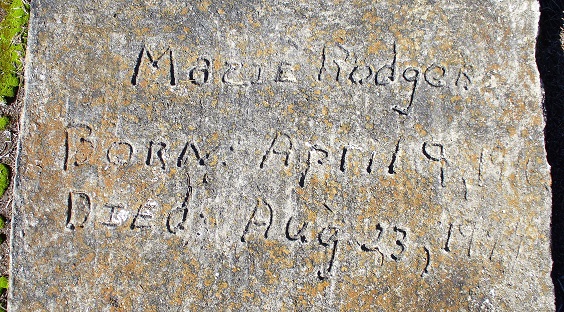 MazIE Rodgers
BORN: April 9,
DIEd: Aug 23,